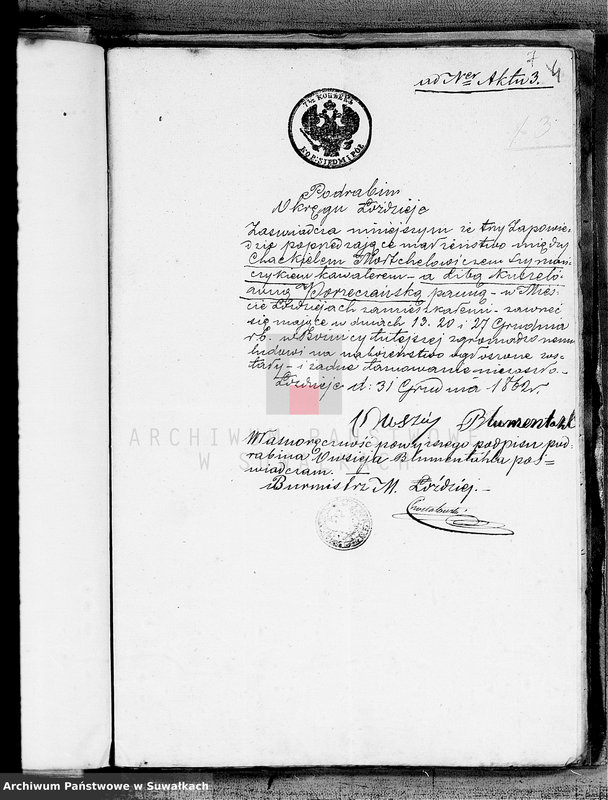 7
4
ad Ner Aktu 3.
13
7½ КОПѢЕКЪ
KOP: SIEDM I PÓŁ
Podrabin
Okręgu Łoździeje
Zaświadcza niniejszym że trzy Zapowie-
dzie poprzedzające małżeństwo między
Chackielem Mortchelowiczem Szyman-
czykiem kawalerem - a Libą Kubzelo-
wną Porzeczańską panną - w Mieś-
cie Łoździejach zamieszkałemi - zawrzeć
się mające w dniach 13. 20 i 27 Grudnia
r.b. w Bożnicy tutejszej zgromadzonemu
ludowi na nabożeństwo ogłoszone zos-
tały - i żadne tamowanie nie zaszło -
Łoździeje d: 31 Grudnia 1862 r.
Owsiej Blumentahl
Własnoręczność powyższego podpisu pod-
rabina Owsieja Blumentahla poś-
wiadczam. -
Burmistrz M. Łoździej. -
ARCHIWUM PAŃSTWOWE
W SUWAŁKACH
Archiwum Państwowe w Suwałkach